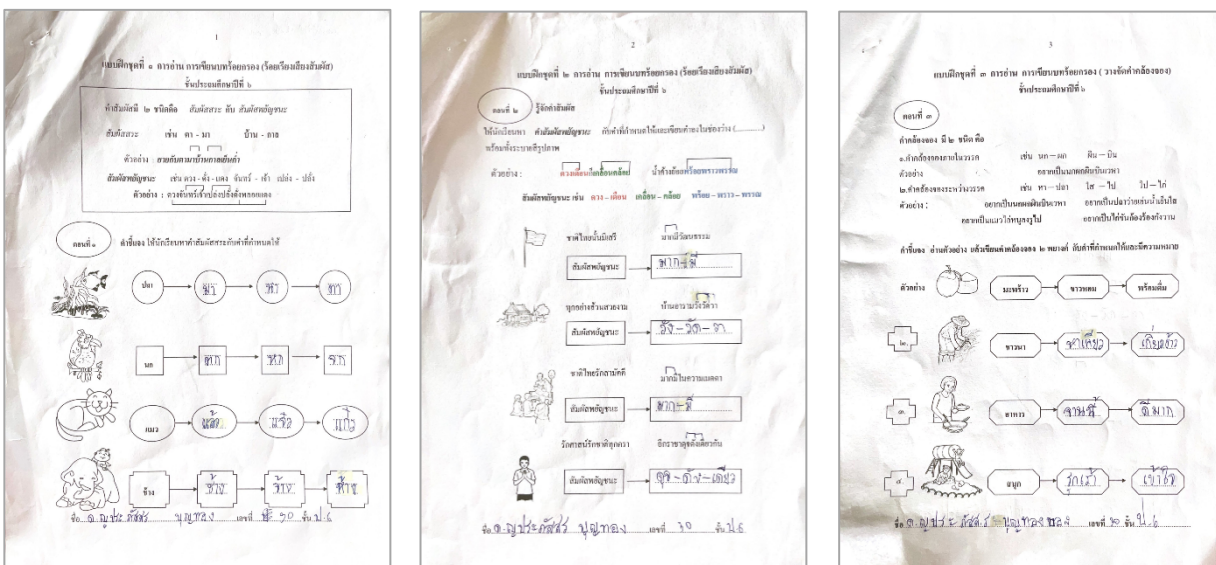 1
แบบฝึกชุดที่ ๑ การอ่าน การเขียนบทร้อยกรอง (ร้อยเรียงเสียงสัมผัส)
ชั้นประถมศึกษาปีที่ ๖
คำสัมผัสมี ๒ ชนิดคือ สัมผัสสระ กับ สัมผัสพยัญชนะ
สัมผัสสระ เช่น ตา - มา บ้าน - กาล
ตัวอย่าง : ยายกับตามาบ้านกาลเย็นค่ำ
สัมผัสพยัญชนะ เช่น ดวง - ดั่ง - แดง จันทร์ - เจ้า เปล่ง - ปลั่ง
ตัวอย่าง : ดวงจันทร์เจ้าเปล่งปลั่งดั่ง
ตอนที่ ๑ คำชี้แจง ให้นักเรียนหาคำสัมผัสสระกับคำที่กำหนดให้
ปลา มา หา ทา
นก ตก หก
แมว แล้ว แก้ว
ช้าง
บุญทอง เลขที่ 30 ชั้น ป.6
2
แบบฝึกชุดที่ ๒ การอ่าน การเขียนบทร้อยกรอง (ร้อยเรียงเสียงสัมผัส)
ชั้นประถมศึกษาปีที่ ๖
ตอนที่ ๒ รู้จักคำสัมผัส
ให้นักเรียนหา คำสัมผัสพยัญชนะ กับคำที่กำหนดให้และเขียนคำลงในช่องว่าง (..........)
พร้อมทั้งระบายสีรูปภาพ
ตัวอย่าง : ดวงเดือนเกลื่อนคล้อย น้ำค้างย้อยพร้อยพราวพรรณ
สัมผัสพยัญชนะ เช่น ดวง - เดือน เกลื่อน - คล้อย พร้อย - พราว - พรรณ
ชาติไทยนั้นมีเสรี มากมีวัฒนธรรม
สัมผัสพยัญชนะ มาก-มี
ทุกอย่างล้วนสวยงาม บ้านอารามวังวัดวา
สัมผัสพยัญชนะ วัง-วัด-วา
ชาติไทยรักสามัคคี มากมีในความเมตตา
สัมผัสพยัญชนะ มาก-มี
รักศาสน์รักชาติทุกครา อีกราชาดุจดั่งเดียวกัน
สัมผัสพยัญชนะ ดุจ-ดั่ง-เดียว
บุญทอง เลขที่ 30 ชั้น ป.6
3
แบบฝึกชุดที่ ๓ การอ่าน การเขียนบทร้อยกรอง ( วางชัดคำคล้องจอง)
ชั้นประถมศึกษาปีที่ ๖
ตอนที่ ๓
คำคล้องจอง มี ๒ ชนิด คือ
๑.คำคล้องจองภายในวรรค เช่น นก – ผก ผิน – บิน
ตัวอย่าง อยากเป็นนกผกผินบินเวหา
๒.คำคล้องจองระหว่างวรรค เช่น หา – ปลา ใส – ไป ไป – ไก่
ตัวอย่าง : อยากเป็นนกผกผินบินเวหา อยากเป็นปลาว่ายเล่นน้ำเย็นใส
อยากเป็นแมวไล่หนูงูรูไป อยากเป็นไก่ขันก้องร้องกังวาน
คำชี้แจง อ่านตัวอย่าง แล้วเขียนคำคล้องจอง ๒ พยางค์ กับคำที่กำหนดให้และมีความหมาย
ตัวอย่าง มะพร้าว ขาวหอม พร้อมดื่ม
๒. ชาวนา เกี่ยวข้าว
๓. อาหาร จานนี้ ดีมาก
๔. สนุก เข้าใจ
เลขที่ 30 ชั้น ป.6